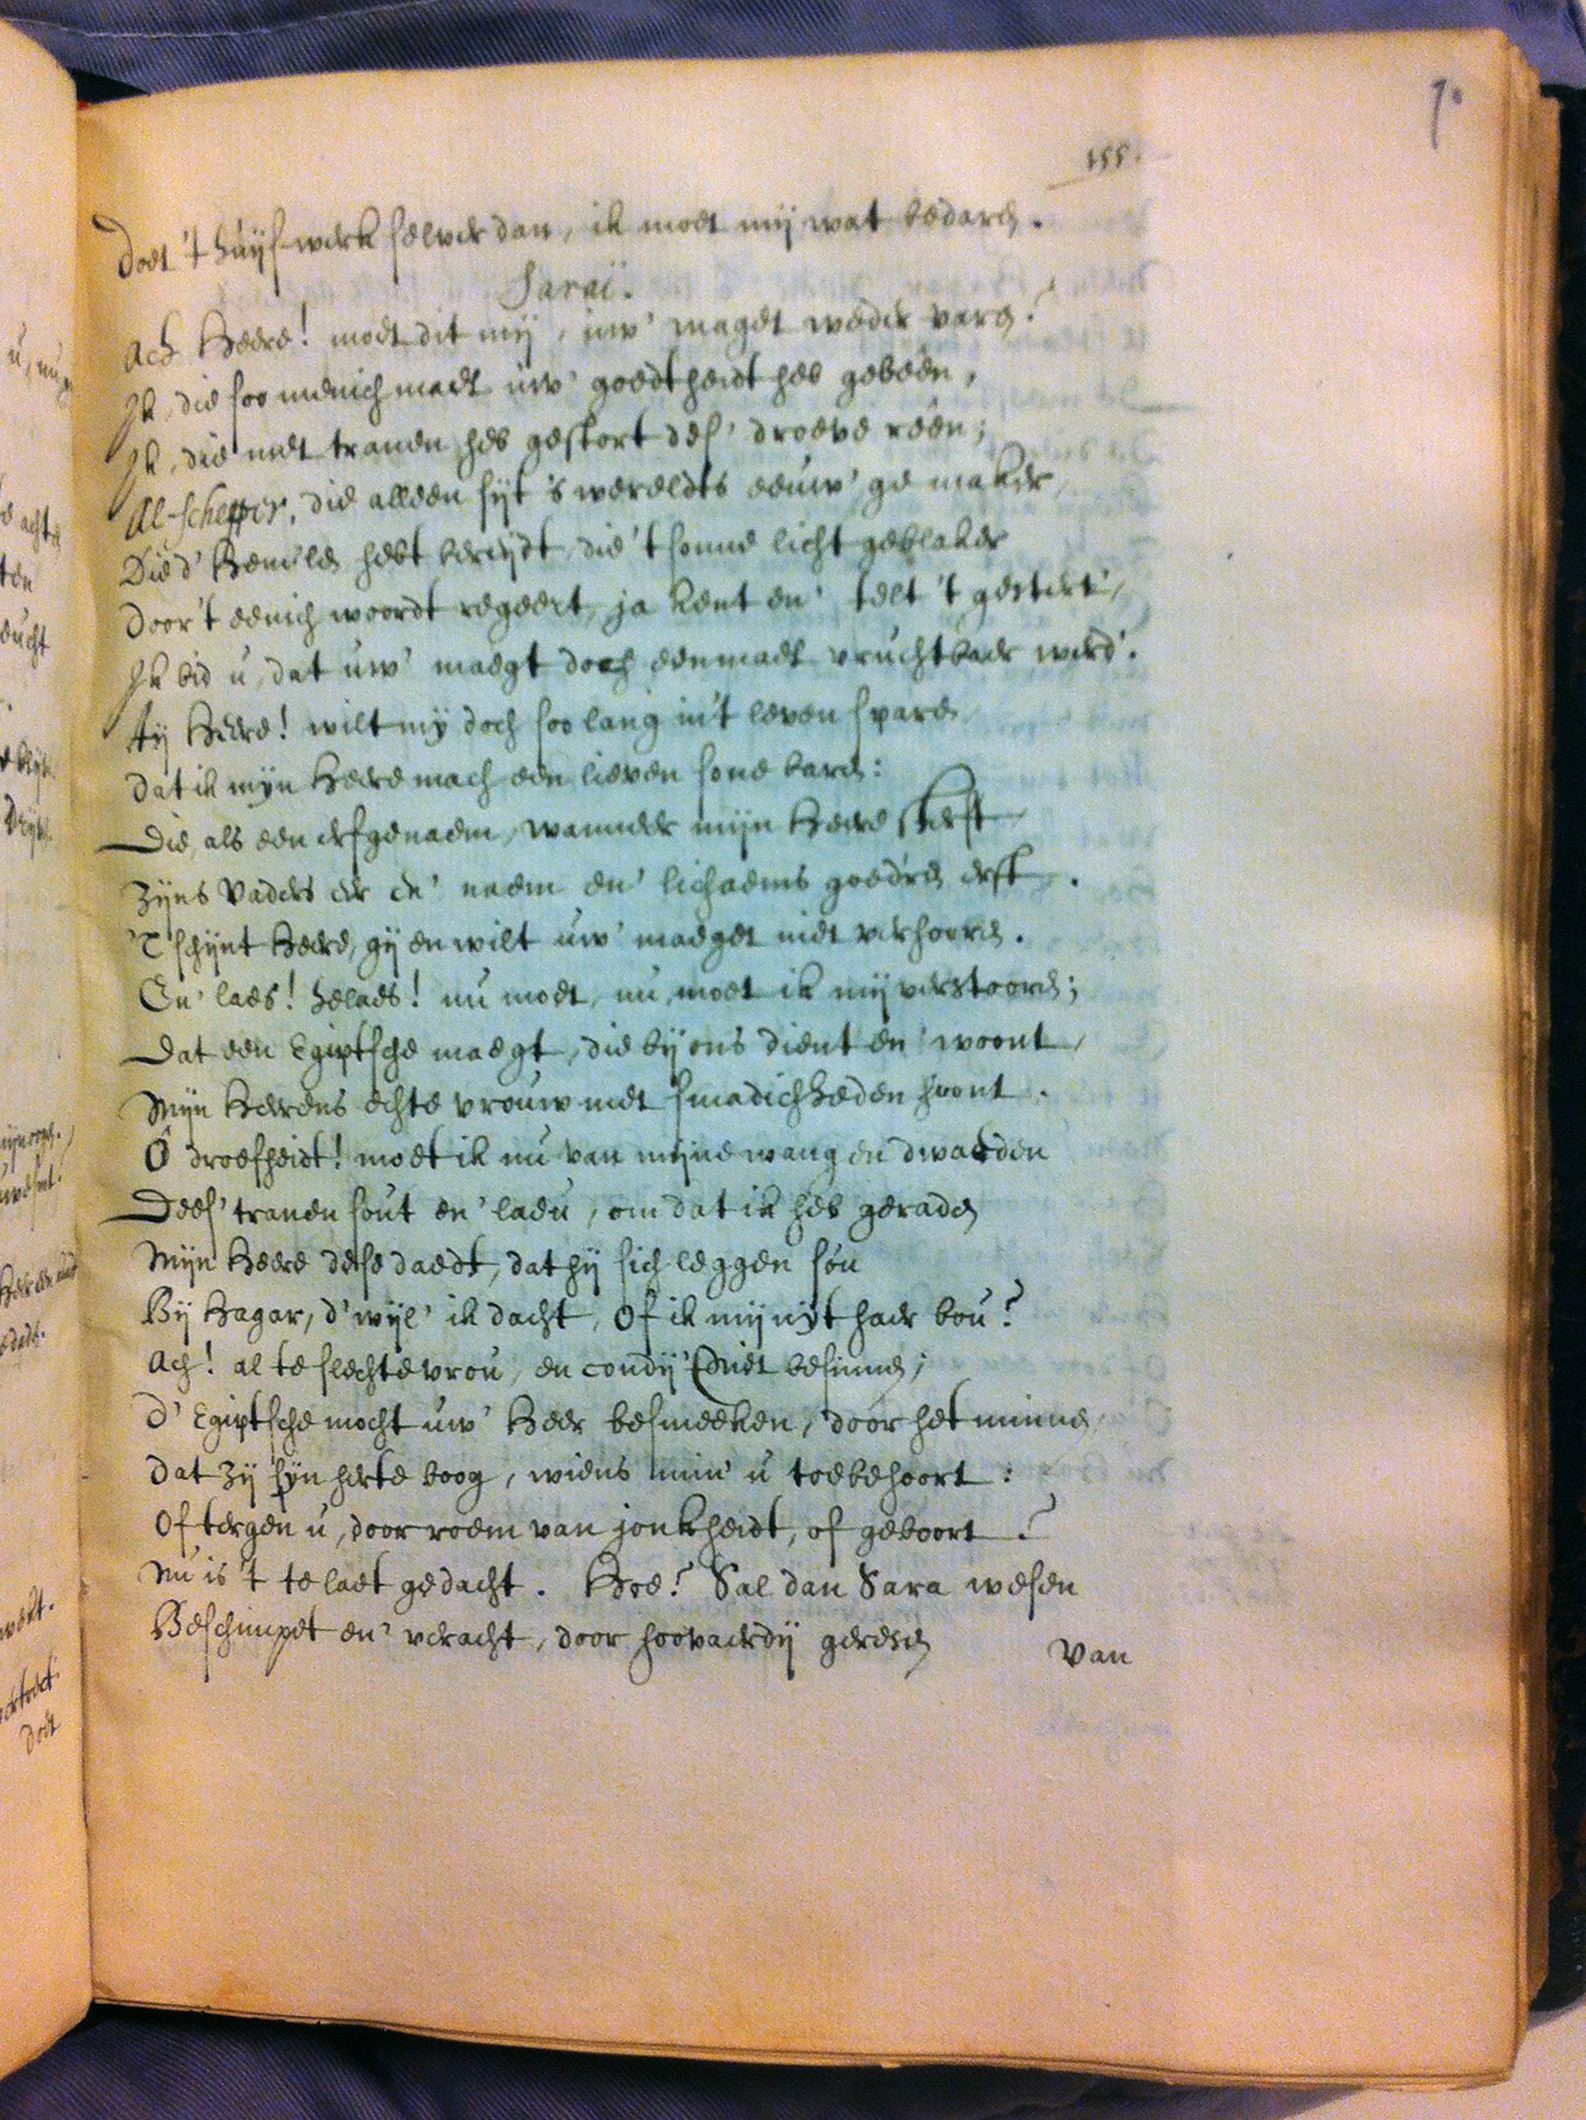 7.
155.
Doet 't huijs-werk selver dan, ik moet mij wat bedaren.
Sarai.
Ach Heere! moet dit mij, uw' maget weder varen?
Ik, die soo menichmael uw' goedtheidt heb gebeên,
Ik, die met tranen heb gestort dees' droeve reên;
Al-schepper, die alleen sijt 's wereldts eeuw'ge maker,
Die d' Hemelen hebt bereijdt, die 't sonne licht geblaker
Door 't eenich woordt regeert, ja kent en' telt 't gestert',
Ik bid u, dat uw' maegt doch eenmael vruchtbaer werd'.
Aij Heere! wilt mij doch soo lang in 't leven sparen
Dat ik mijn Heere mach een lieven sone baren:
Die, als een erfgenaem, wanneer mijn Heere sterft
Zijns Vaders eer en' naem en' lichaems goed'ren erft.
'T schijnt Heere, gij en wilt uw' maeget niet verhooren.
En' laes! helaes! nu moet, nu moet ik mij verstooren;
Dat een Egiptsche maegt, die bij ons dient en' woont,
Mijn Heerens echte vrouw met smadichheden hoont.
Ô droefheidt! moet ik nu van mijne wangen dwaeden
Dees' tranen sout en' laeu, om dat ik heb geraden
Mijn Heere dese daedt, dat hij sich leggen sou
Bij Hagar, d'wijl' ik dacht, Of ik mij uijt haer bou?
Ach! al te slechte vrou, en condij 't niet besinnen;
D' Egiptsche mocht uw' Heer besmeeken, door het minnen,
Dat zij sijn herte boog, wiens min' u toebehoort:
Of tergen u, door roem van jonkheidt, of geboort?
Nu is 't te laet gedacht. Hoe? Sal dan Sara wesen
Beschimpet en' veracht, door hoovaerdij geresen
Van